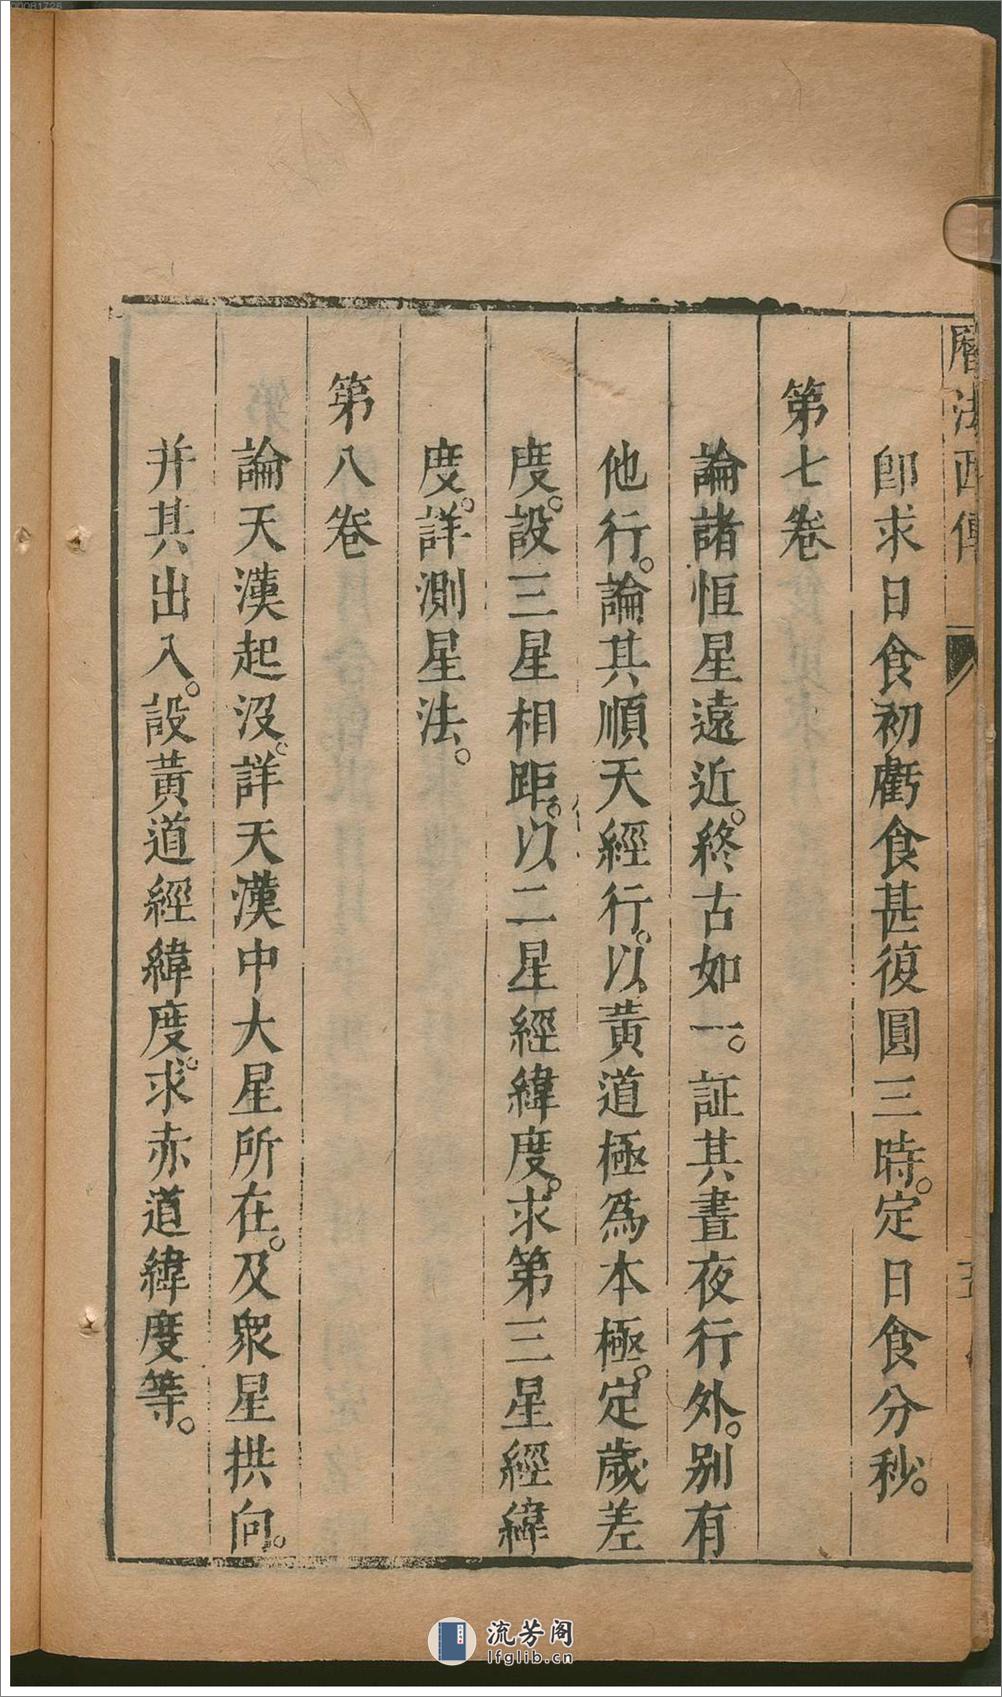 曆法西傳
五
即求日食初虧食甚復圓三時。定日食分秒。
第七卷
論諸恒星遠近。終古如一。証其晝夜行外。别有
他行。論其順天經行。以黃道極為本極。定歲差
度。設三星相距。以二星經緯度。求第三星經緯
度。詳測星法。
第八卷
論天漢起没。詳天漢中大星所在。及衆星拱向。
并其出入。設黃道經緯度。求赤道緯度等。
流芳阁
lfglib.cn